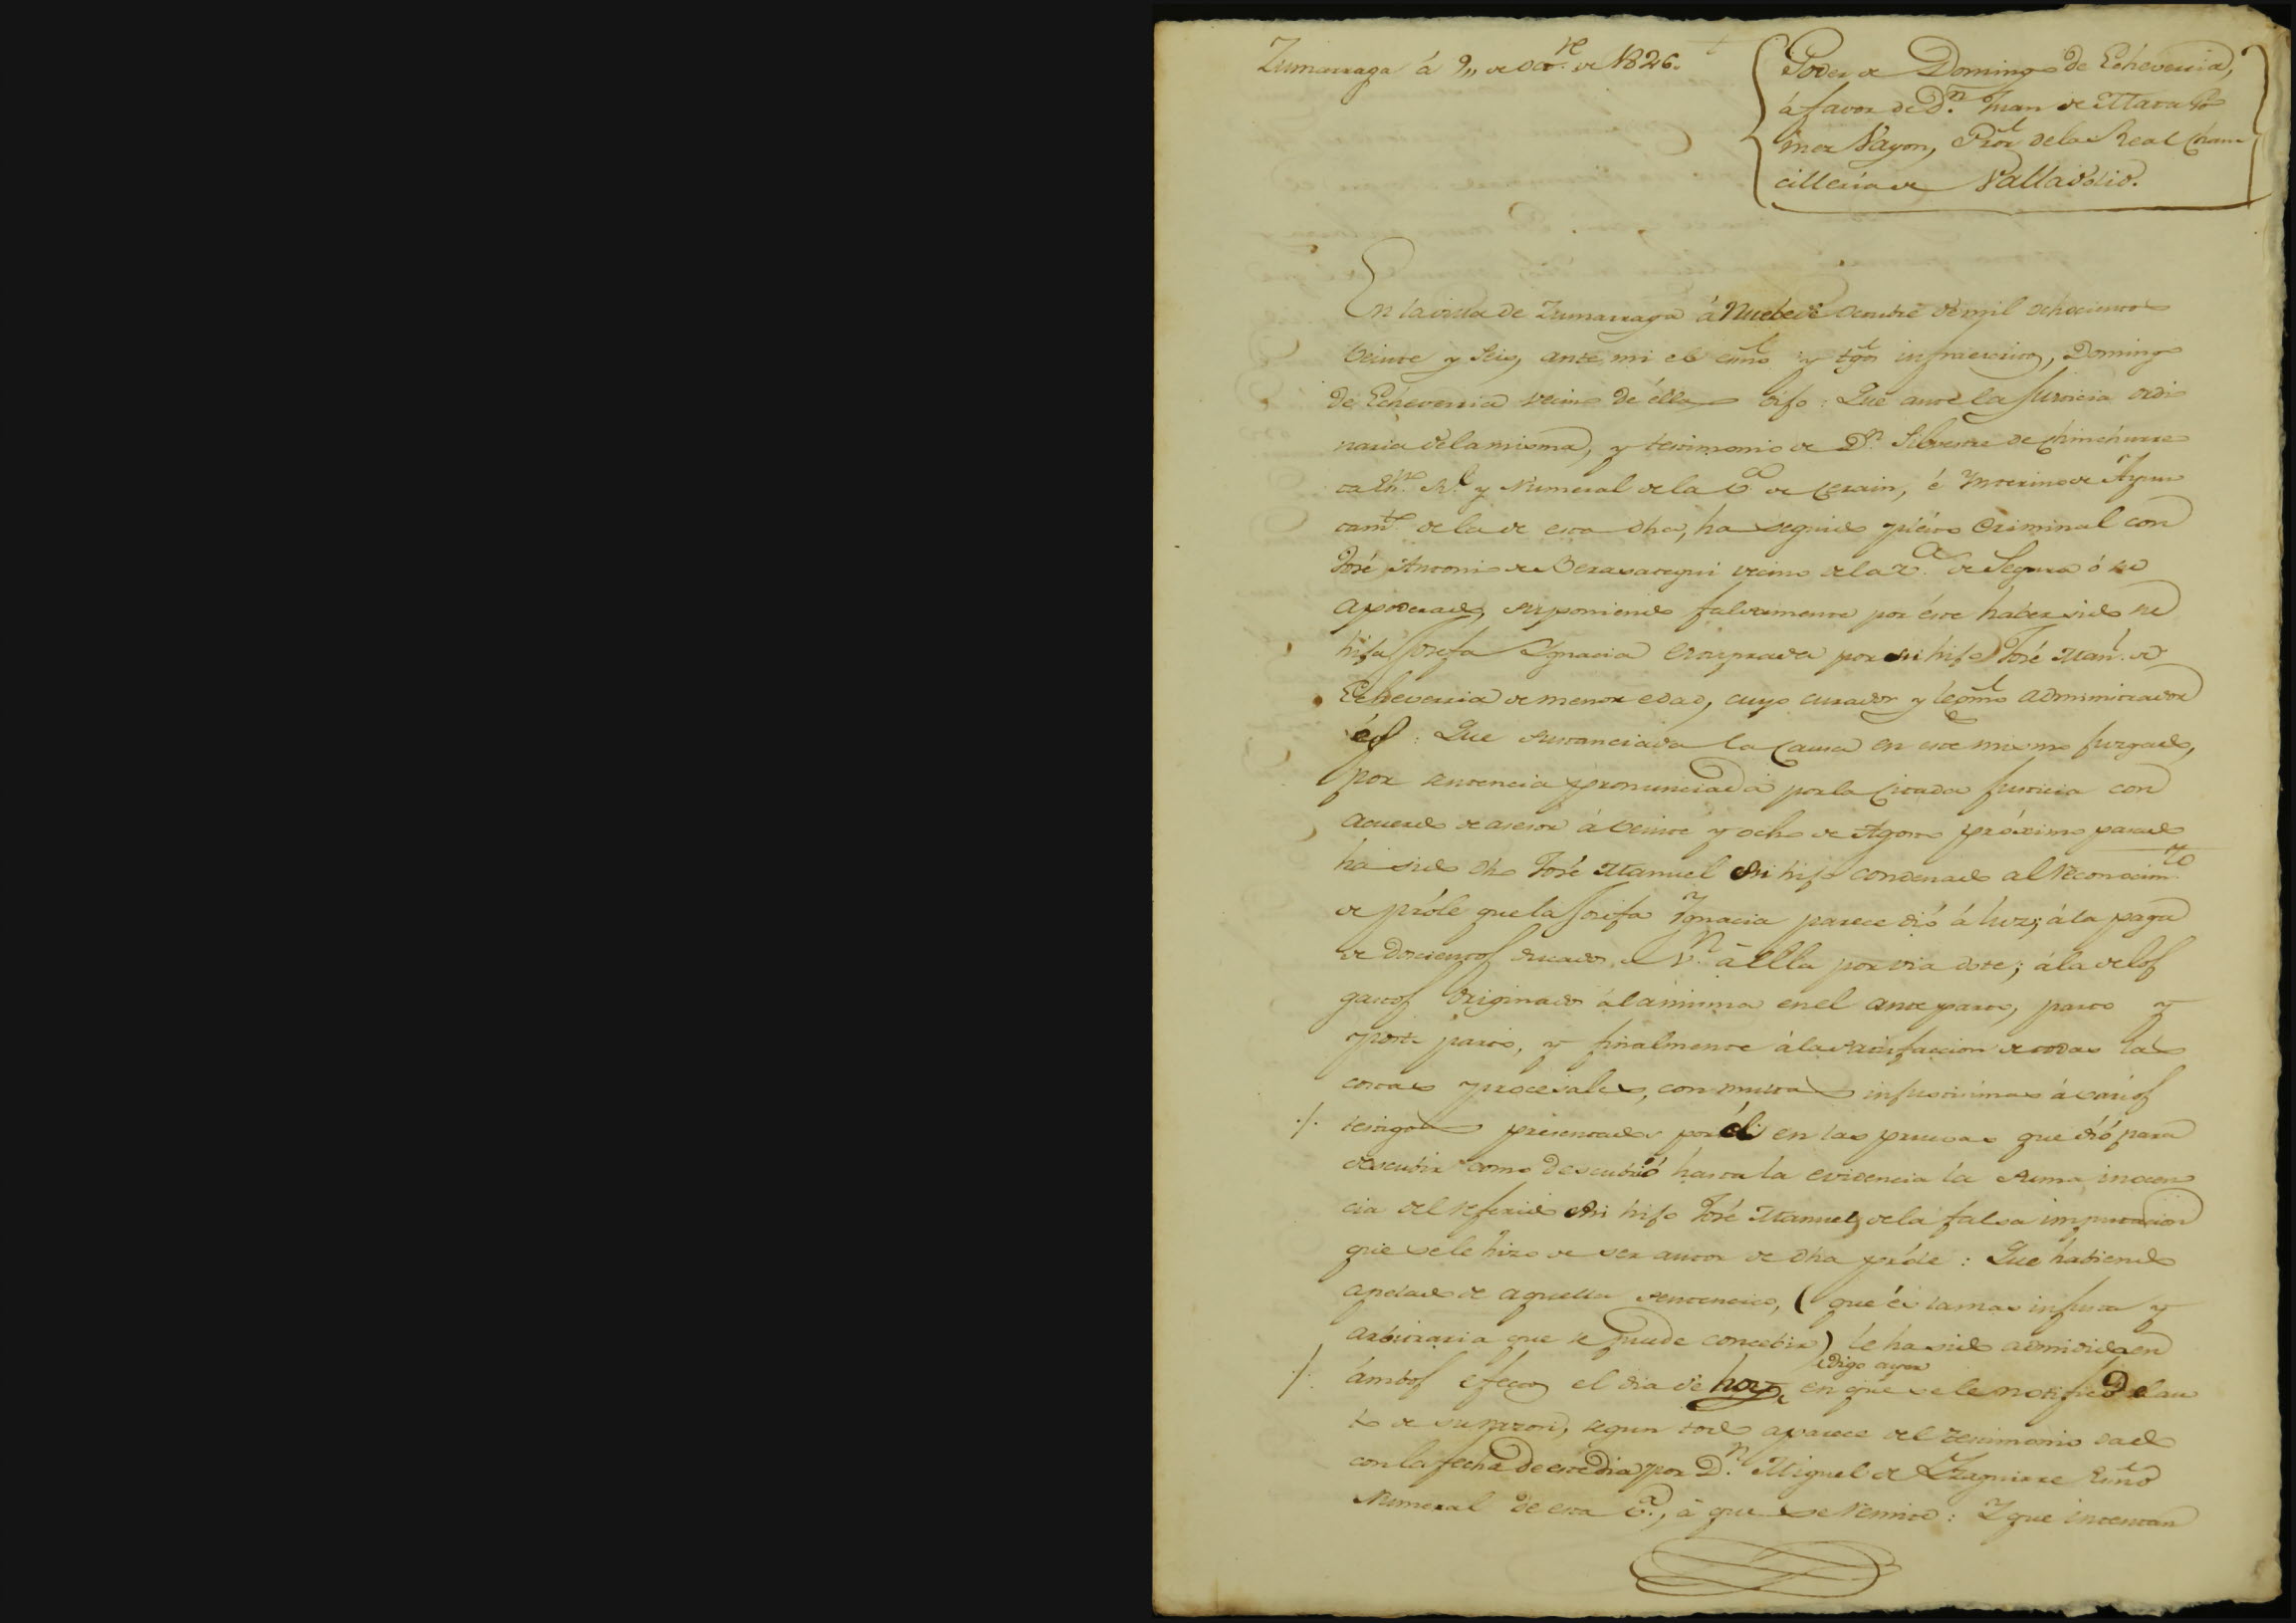 Zumarraga á 9,, de Oct.re de 1826.
Poder de Domingo de Echeverria,
á favor de D.n Juan de Mata
Vayon, Pror de la Real Chan
cilleria de Valladolid.
En la villa de Zumarraga á Nuebe de Octubre de mil ochocientos
veinte y seis, ante mi el esno y tgos infraescritos, Domingo
de Echeverria vecino de élla dijo: Que ante la Justicia ordi
naria de la misma, y testimonio de D.n Silvestre de Chinchurre
ta Rl. y Numeral de la V.a de Cerain, é Ynterino de Ayun
tam.to de la de esta dha, ha seguido pleito Criminal con
José Antonio de Berasategui vecino de la v.a de Segura ó su
apoderado, suponiendo falsamente por éste haber sido su
hija Josefa Ygnacia estuprada por su hijo José Man.l de
Echeverria de menor edad, cuyo curador y legmo administrador
és: Que sustanciada la Causa en este mismo Juzgado,
por sentencia pronunciada por la Citada Justicia con
acuerdo de asesor á veinte y ocho de Agosto próximo pasado
ha sido dho José Manuel su hijo condenado al reconocim.to
de próle que la Josefa Ygnacia parece dió á luz; á la paga
de doscientos ducados de V.n á ella por via dote; á la de los
gastos originados á la misma en el ante parto, parto y
post parto, y finalmente á la satisfaccion de todas las
costas procesales, con multas injustisimas á varios
testigos presentados por él en las pruebas que dió para
descubrir como descubrió hasta la evidencia la suma inocen
cia del referido su hijo José Manuel, de la falsa imputacion
que se le hizo de ser autor de dha próle: Que habiendo
apelado de aquella sentencia, (que és la mas injusta y
arbitraria que se puede concebir) le ha sido admitida en
digo ayer
ámbos efectos el dia de hoy, en que se le notificó el au
to de su razon, segun todo aparece del testimonio dado
con la fecha de este dia por D.n Miguel de Yzaguirre Esno
Numeral de esta V.a, á que se remite: Y que intentan